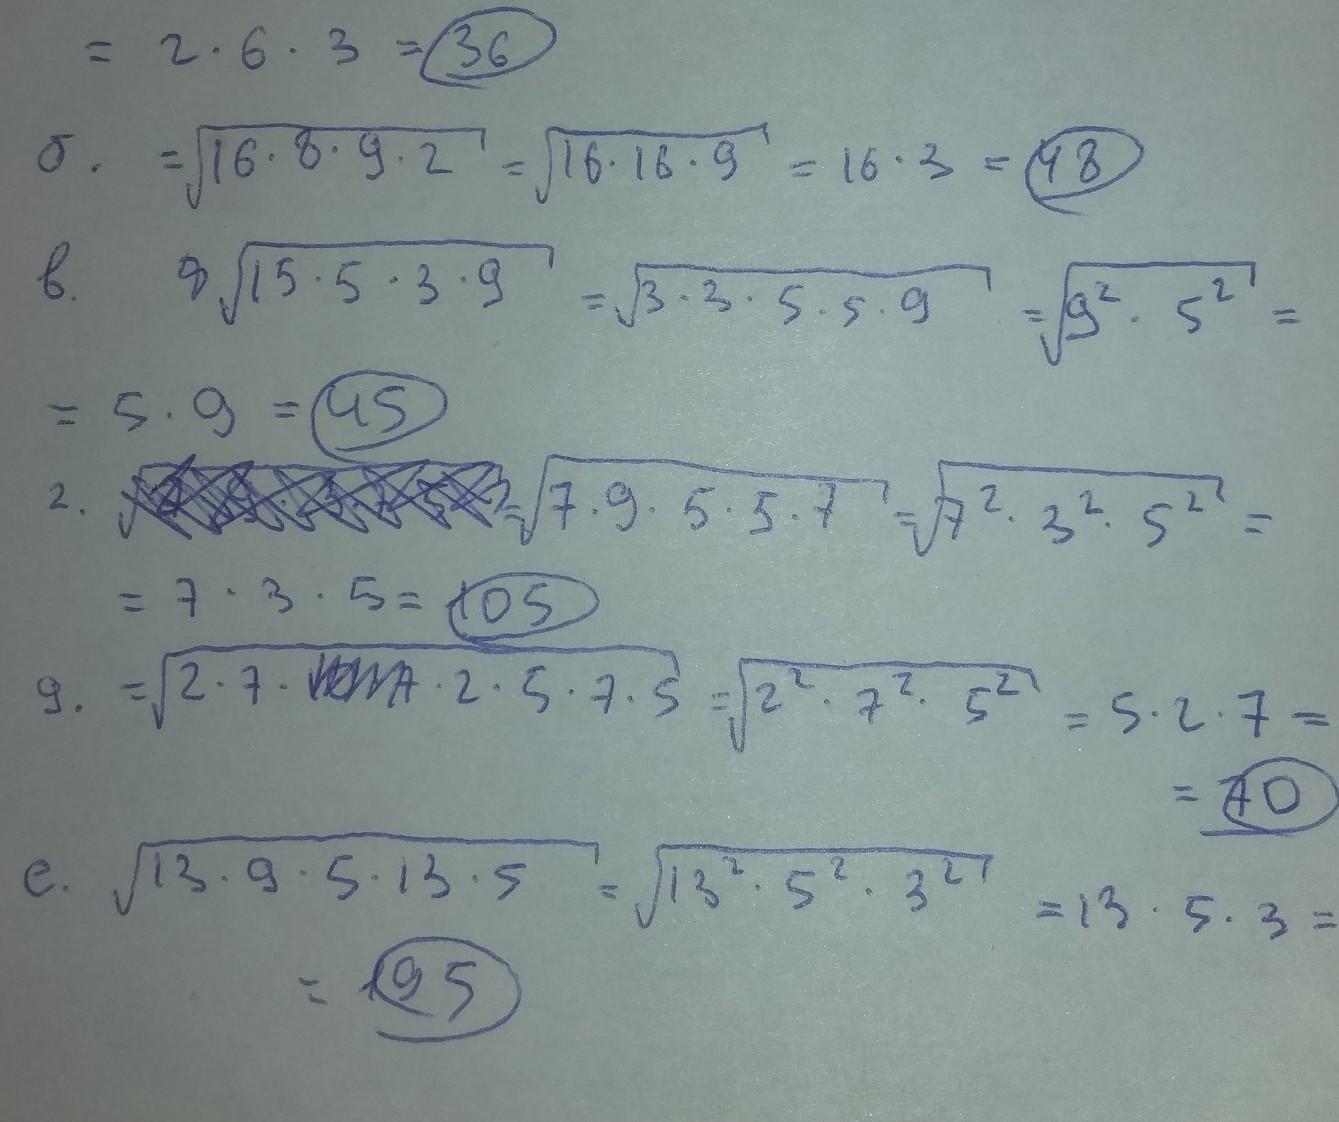 = 2 · 6 · 3 = 36
б. = √16 · 8 · 9 · 2 = √16 · 16 · 9 = 16 · 3 = 48
в. √15 · 5 · 3 · 9 = √3 · 3 · 5 · 5 · 9 = √9² · 5² =
= 5 · 9 = 45
г. = √7 · 9 · 5 · 5 · 7 = √7² · 3² · 5² =
= 7 · 3 · 5 = 105
д. = √2 · 7 · 2 · 5 · 7 · 5 = √2² · 7² · 5² = 5 · 2 · 7 =
= 70
е. √13 · 9 · 5 · 13 · 5 = √13² · 5² · 3² = 13 · 5 · 3 =
= 195